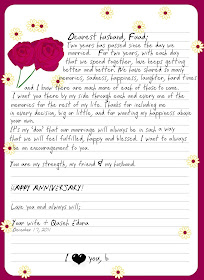 Dearest husband, Fuad;
Two years has passed since the day we
married. For two years, with each day
that we spend together, love keeps getting
better and better. We have shared so many
memories, sadness, happiness, laughter, hard times
and I know there are much more of those to come.
I want you there by my side through each and every one of the
memories for the rest of my life. Thanks for including me
in every decision, big or little, and for wanting my happiness above
your own.
It's my 'doa' that our marriage will always be in such a way
that we will feel fulfilled, happy and blessed. I want to always
be an encouragement to you.
You are my strength, my friend & my husband.
HAPPY ANNIVERSARY!
Love you and always will;
Your wife ~ Qaseh Edana
December 19, 2011
I ♥ you, b